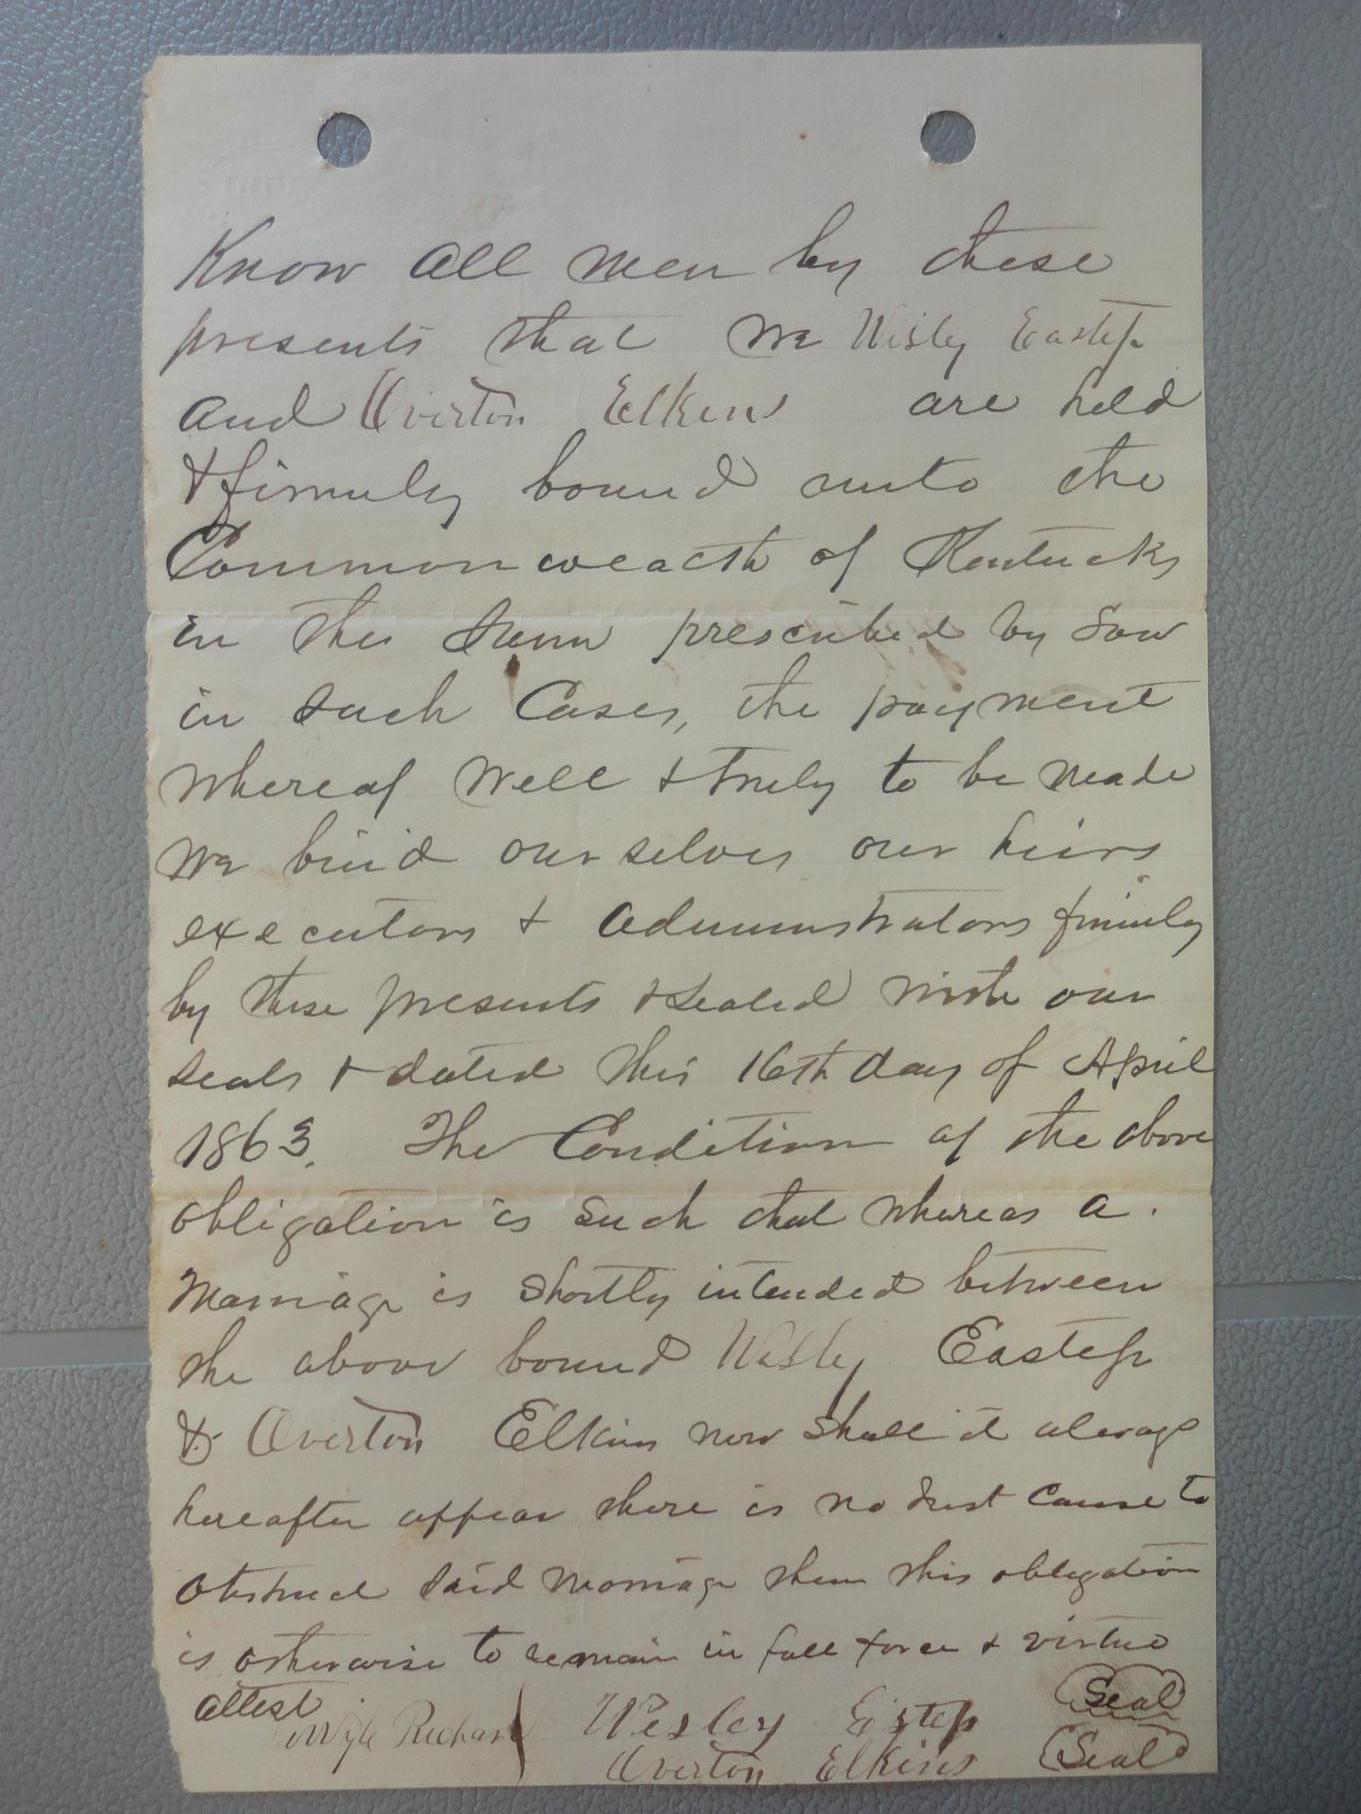 Know all men by these
presents that we Wisly Eastep
and Overton Elkins are held
& firmly bound unto the
Commonwealth of Kentucky
in the Sum prescribed by Law
in such Cases, the payment
whereof well & truly to be made
we bind ourselves our heirs
executors & administrators firmly
by these presents & sealed with our
seals & dated this 16th day of April
1863. The Condition of the above
obligation is such that whereas a
Marriage is shortly intended between
the above bound Wesley Eastep
& Overton Elkins now shall it always
hereafter appear there is no Just cause to
obstruct said marriage then this obligation
is otherwise to remain in full force & virtue
attest Wesley Eistep Seal
Overton Elkins Seal